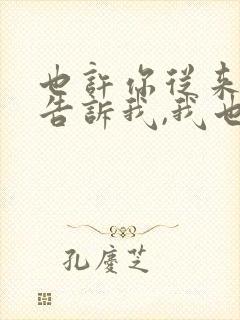 也許你從来
告訴我,我也
孔慶芝